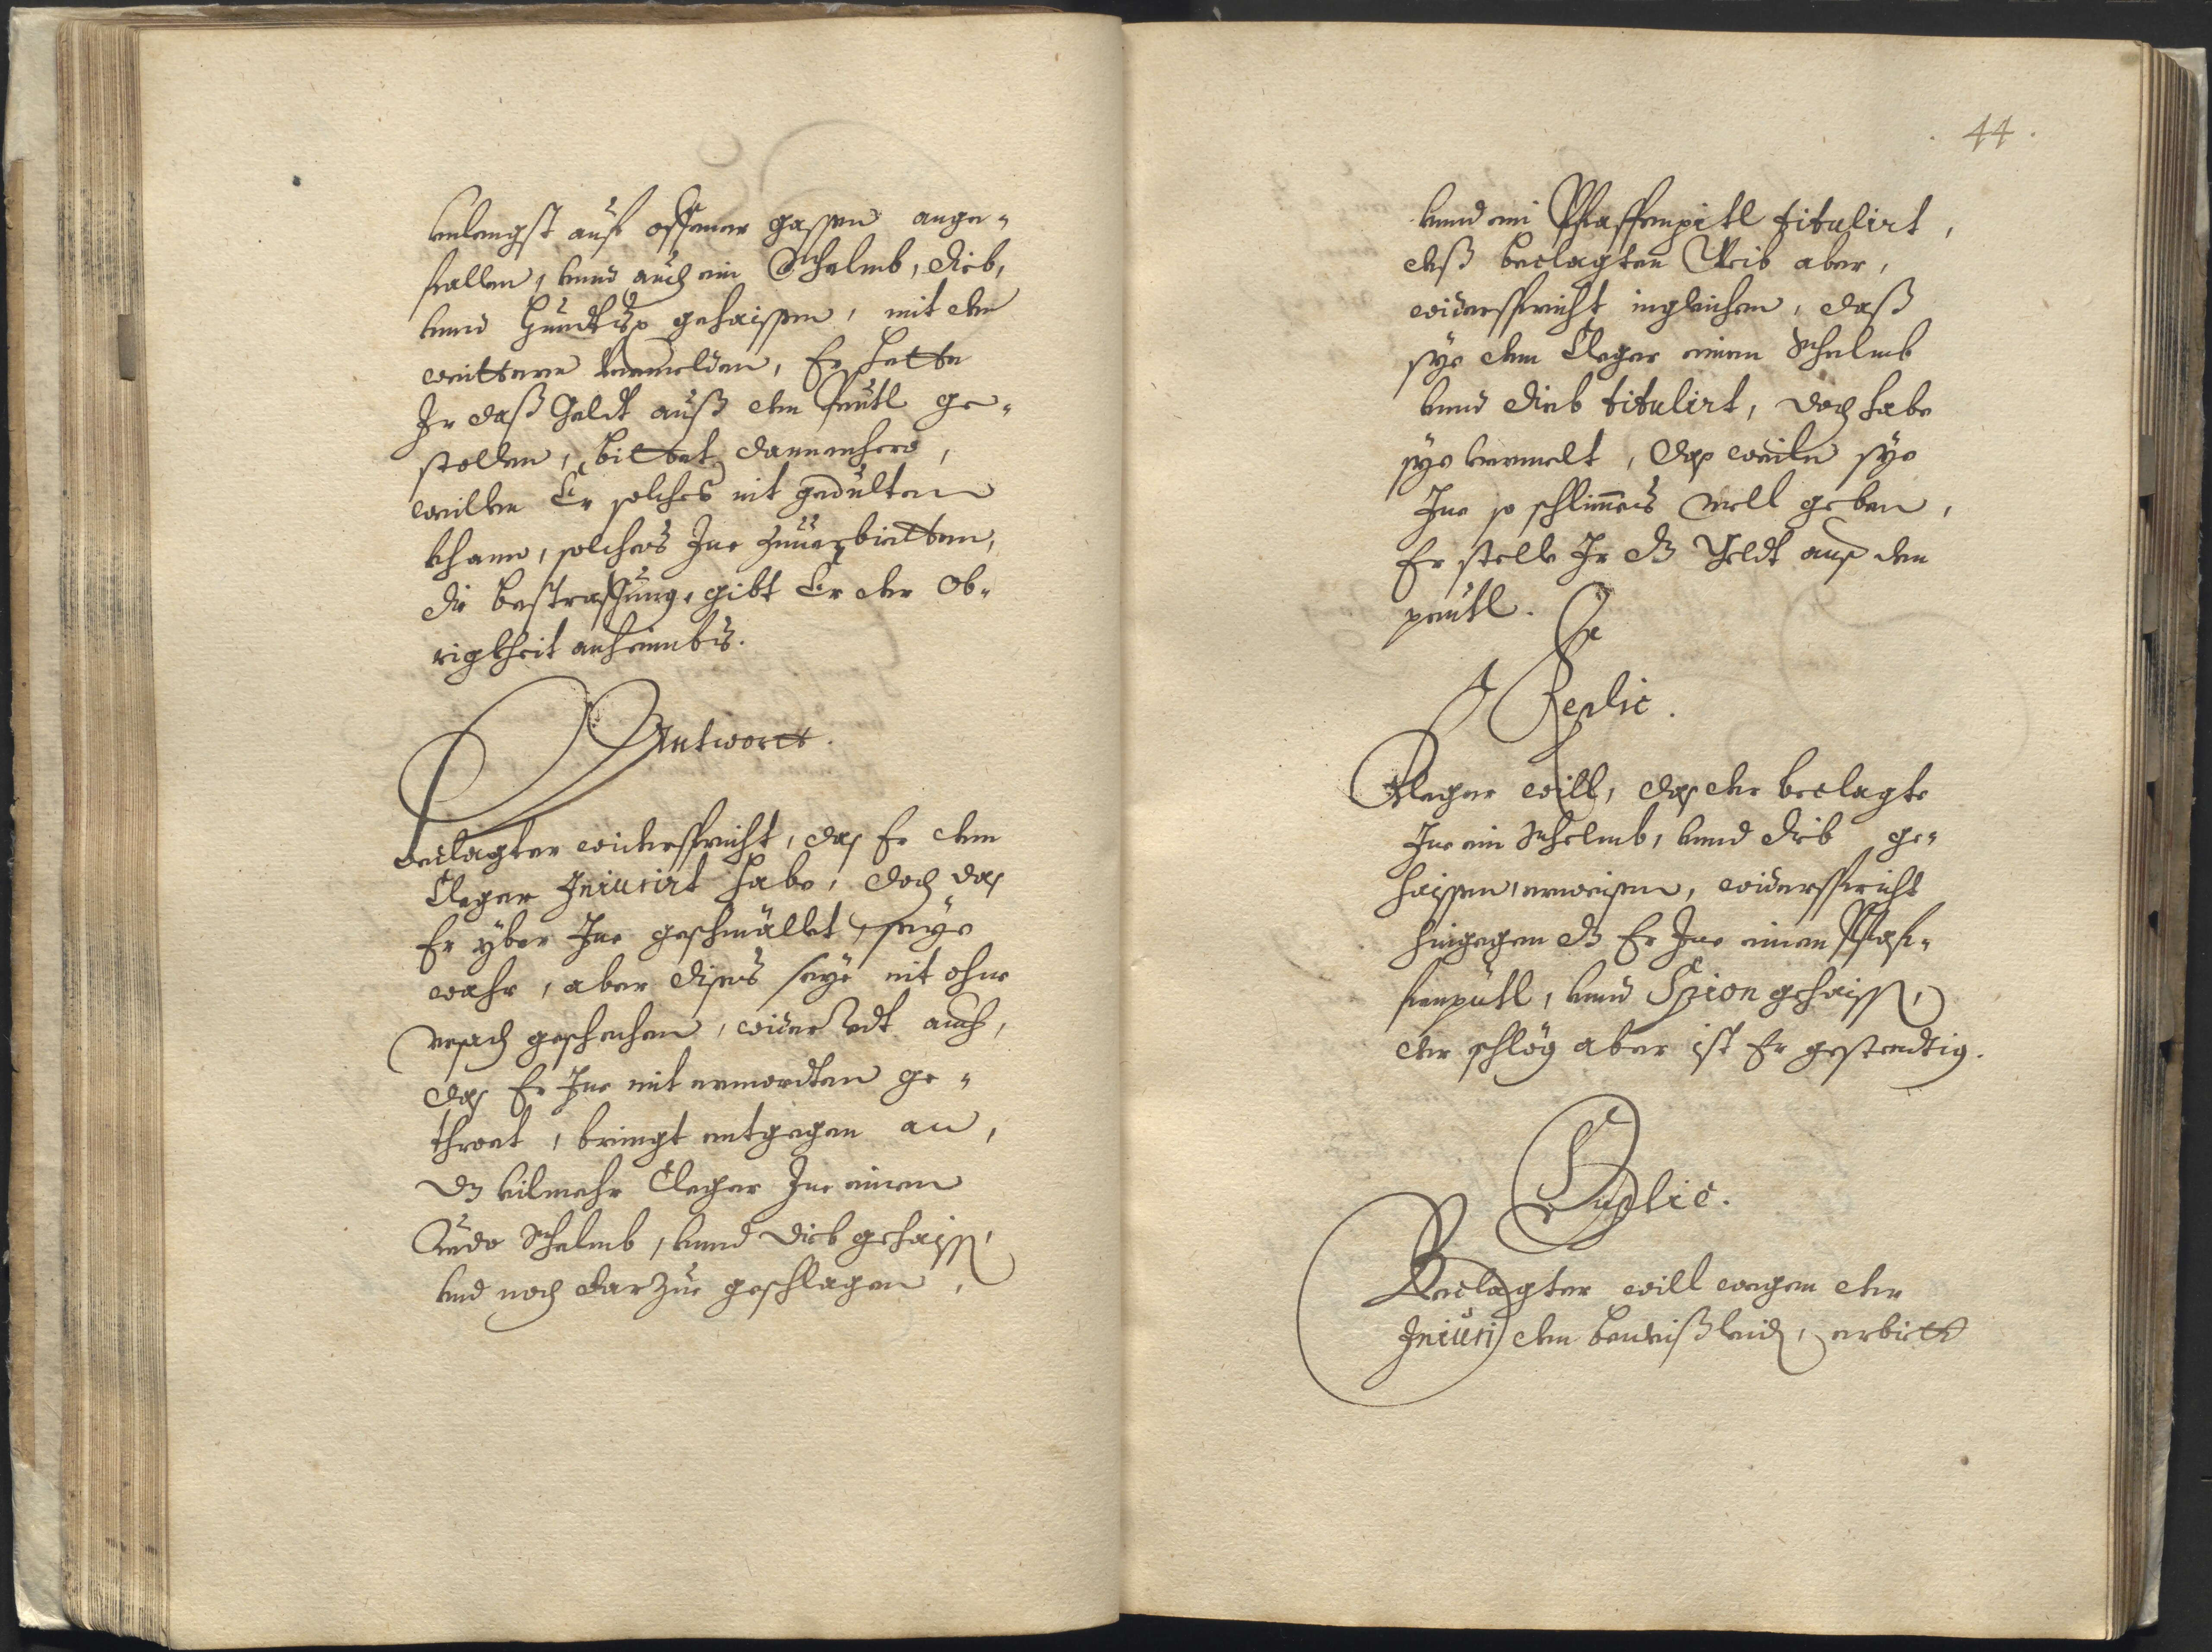 vnlengst auf offener gassen ange-
fallen, vnnd auch ein Schelmb, Dieb,
vnnd Hundtsf: gehaissen, mit dem
weittern vermelden, Er hette
Jr daß Geldt auß dem Peutl ge-
stollen, bittet dannenhero,
weillen Er solches nit gedulten
khann, solches Jne zuuerbietten,
die bestraffung gibt Er der Ob-
rigkheit anheimbs.
Antwortt.
Beclagter widerspricht, das Er dem
Cleger Jniurirt habe, doch das
Er yber Jne geschmällt, seye
wahr, aber dises seye nit ohne
vrsach geschechen, widerredt auch,
das Er Jne mit ermordten ge-
throet, bringt entgegen an,
dz vilmehr Cleger Jne einen
Schelmb, vnnd Dieb gehaiss,
vnd noch darzue geschlagen,
44.
vnnd ein Pfaffenpitl titulirt,
deß beclagten Weib aber,
widerspricht ingleichen, daß
sye dem Cleger einen Schelmb
vnnd Dieb titulirt, doch habe
sye vermelt, das weiln sye
Jne so schlimmes Mell geben,
Er stelle Jr dz Geldt aus dem
peutl.
Replic.
Cleger will, das der beclagte
Jne ein Schelmb, vnnd Dieb ge-
haissen, erweisen, widerspricht
hingegen dz Er Jne einen Pfaf-
fenpütl, vnnd Spion gehaiss,
der schlög aber ist Er gestendtig.
Duplic.
Beclagter will wegen der
Jniuri den beweiß laid, erbiett